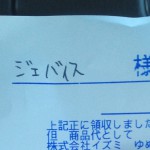 ジェバイス 様
上記正に領収しました
但 商品代として
株式会社イズミ ゆめ